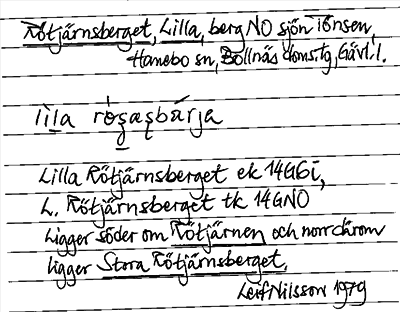 Rötjärnsberget, Lilla, berg NO sjön Iönsen,
Hanebo sn, Bollnäs doms.tg, Gävl.l.
Lilla Rötjärnsberget ek 14G6i,
L. Rötjärnsberget tk 14GNO
Ligger söder om Rötjärnen och norr därom
ligger Stora Rötjärnsberget.
Leif Nilsson 1979